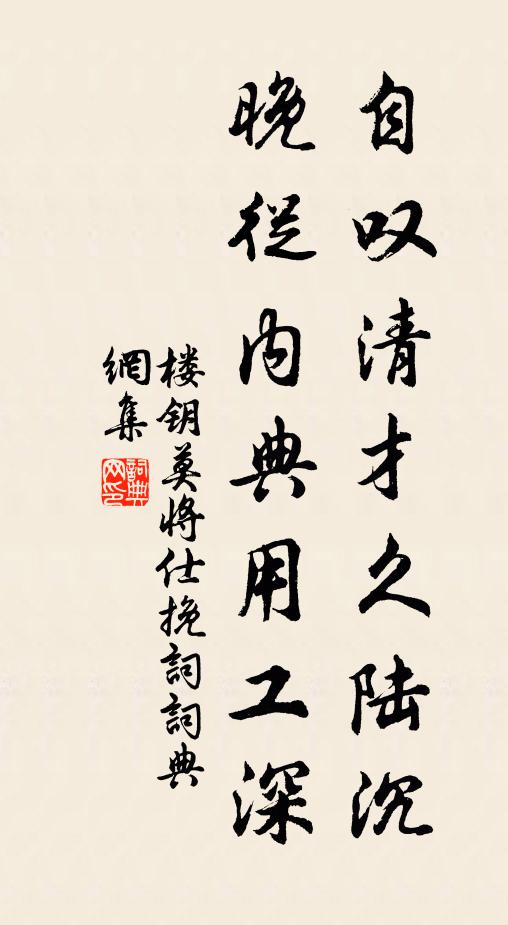 自叹清才久陆沉
晚從内典用工深
楼钥莫将仕挽詞詞典
網集
詞典
网印